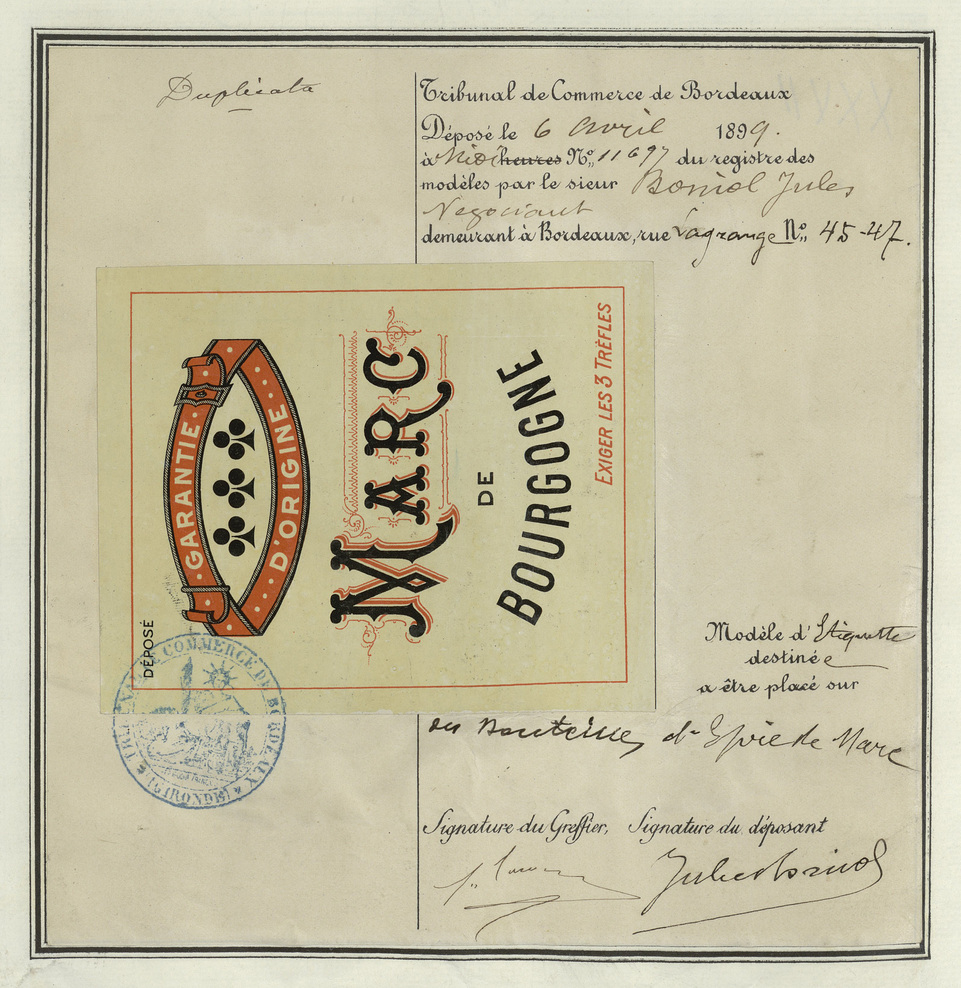 Duplicata
Tribunal de Commerce de Bordeaux
Déposé le 6 Avril 1899.
à Midi heures No. 11697 du registre des
modèles par le sieur Boniol Jules
Negociant
demeurant à Bordeaux, rue Lagrange No. 45-47.
DÉPOSÉ
GARANTIE
D'ORIGINE
MARC
DE
BOURGOGNE
EXIGER LES 3 TRÈFLES
TRIBUNAL DE COMMERCE DE BORDEAUX
(GIRONDE)
Modèle d'Etiquette
destinée
a être placé sur
des Bouteilles d'Epie de Marc
Signature du Greffier, Signature du déposant
Jules Boniol